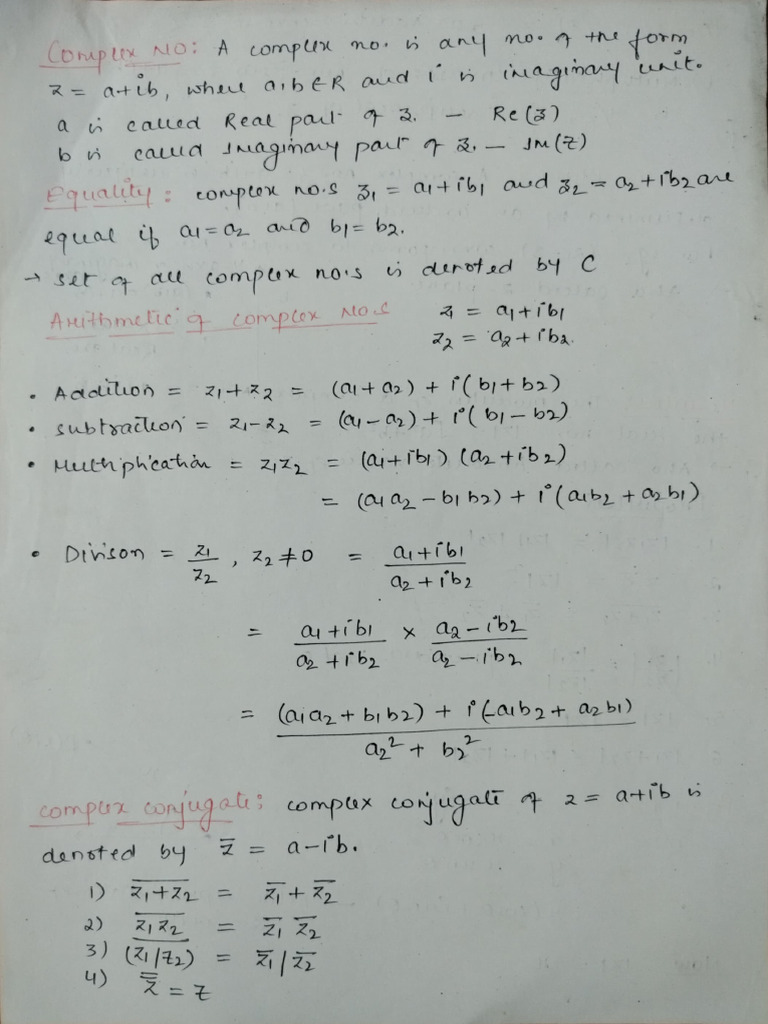 Complex No: A complex no. is any no. of the form
z = a+ib, where a,b ∈ R and i is imaginary unit.
a is called Real part of z. – Re(z)
b is called Imaginary part of z. – IM(z)
Equality: complex no.s z₁ = a₁+ib₁ and z₂ = a₂+ib₂ are
equal if a₁=a₂ and b₁=b₂.
→ set of all complex no.s is denoted by C
Arithmetic of complex No.s z₁ = a₁+ib₁
z₂ = a₂+ib₂.
• Addition = z₁+z₂ = (a₁+a₂) + i(b₁+b₂)
• subtraction = z₁-z₂ = (a₁-a₂) + i(b₁-b₂)
• Multiplication = z₁z₂ = (a₁+ib₁) (a₂+ib₂)
= (a₁a₂ - b₁b₂) + i(a₁b₂ + a₂b₁)
• Divison = z₁/z₂, z₂≠0 = (a₁+ib₁)/(a₂+ib₂)
= (a₁+ib₁)/(a₂+ib₂) × (a₂-ib₂)/(a₂-ib₂)
= ((a₁a₂+b₁b₂) + i(-a₁b₂+a₂b₁))/(a₂²+b₂²)
complex conjugate: complex conjugate of z = a+ib is
denoted by z̅ = a-ib.
1) \overline{z₁+z₂} = z̅₁ + z̅₂
2) \overline{z₁z₂} = z̅₁ z̅₂
3) \overline{(z₁/z₂)} = z̅₁/z̅₂
4) z̿ = z